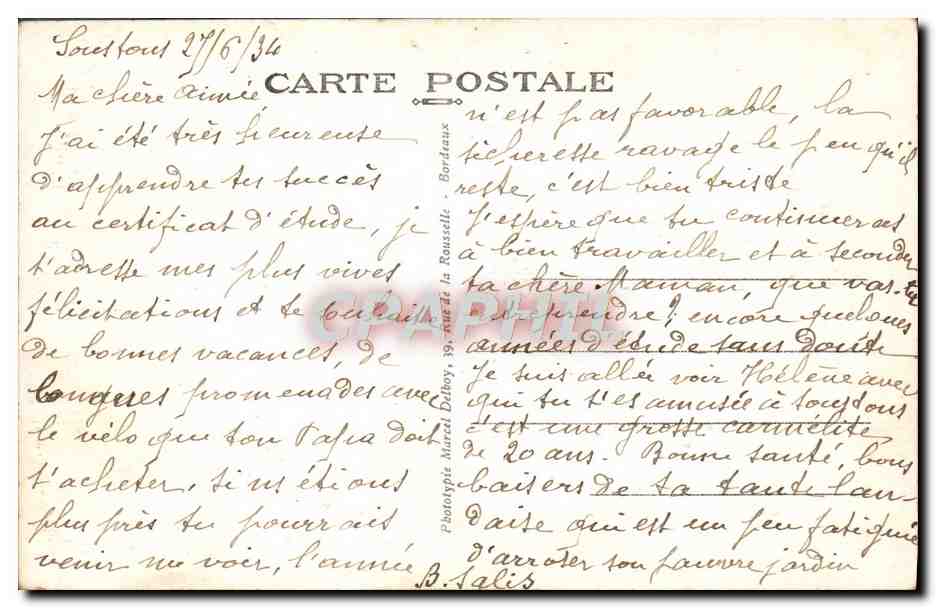 Soustons 27/6/34
CARTE POSTALE
Ma chère Aimée
J'ai été très heureuse
d'apprendre tes succès
au certificat d'étude, je
t'adresse mes plus vives
félicitations et te souhaite
de bonnes vacances, de
longues promenades avec
le vélo que ton Papa doit
t'acheter, si ns étions
plus près tu pourrais
venir me voir, l'année
n'est pas favorable, la
sécheresse ravage le peu qu'il
reste, c'est bien triste
J'espère que tu continueras
à bien travailler et à seconder
ta chère Maman, que vas-tu
entreprendre? encore quelques
années d'étude sans doute
Je suis allée voir Hélène avec
qui tu t'es amusée à Soustons
c'est une grosse carmélite
de 20 ans. Bonne santé, bons
baisers de ta tante lan-
daise qui est un peu fatiguée
d'arroser son pauvre jardin
B. Salis
Phototypie Marcel Delboy, 39, Rue de la Rousselle - Bordeaux
CPAPHIL